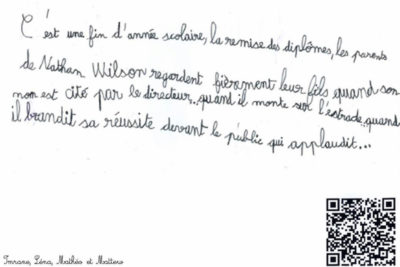 C'est une fin d'année scolaire, la remise des diplômes, les parents
de Nathan Wilson regardent fièrement leur fils quand son
nom est cité par le directeur, quand il monte sur l'estrade, quand
il brandit sa réussite devant le public qui applaudit...
Imrane, Léna, Mathéo et Matteo